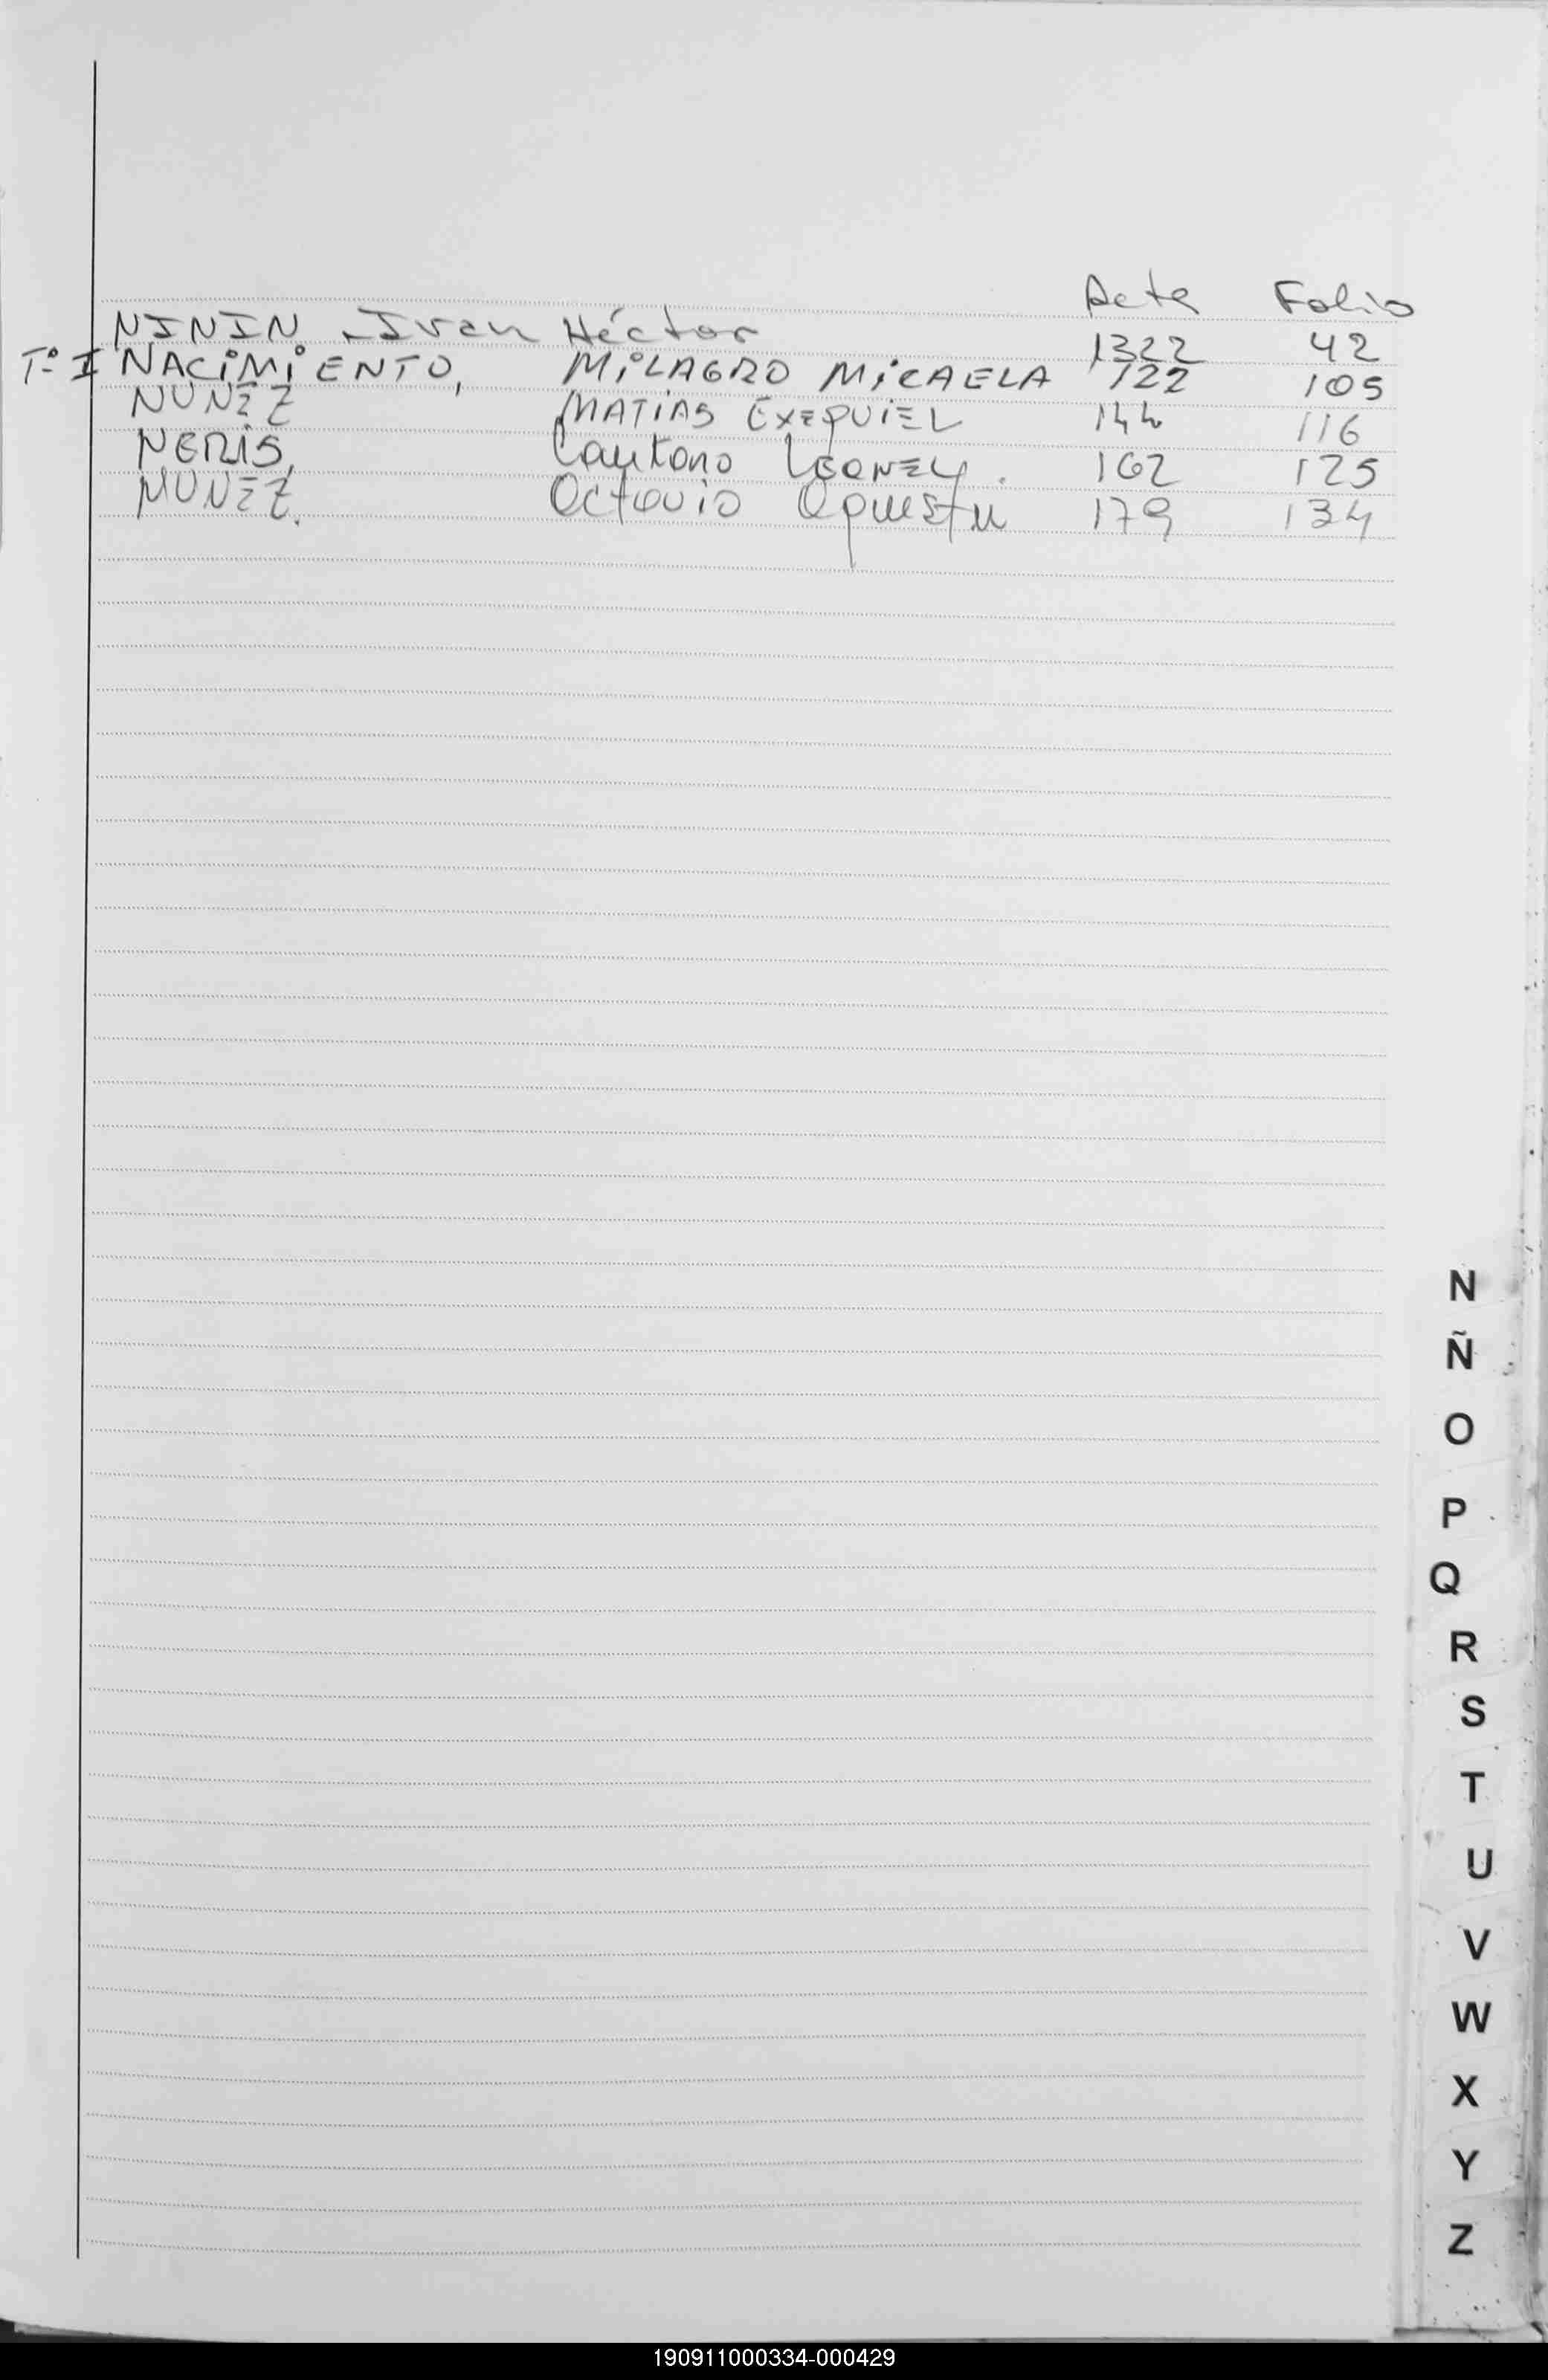 Acta Folio
NININ - Ivan Héctor 1322 42
Tº I NACIMIENTO, MILAGRO MICAELA 122 105
NUNEZ MATIAS EXEQUIEL 144 116
NERIS, Leonel. 162 125
NUNEZ. Octavio 179 134
N
Ñ
O
P
Q
R
S
T
U
V
W
X
Y
Z
190911000334-000429